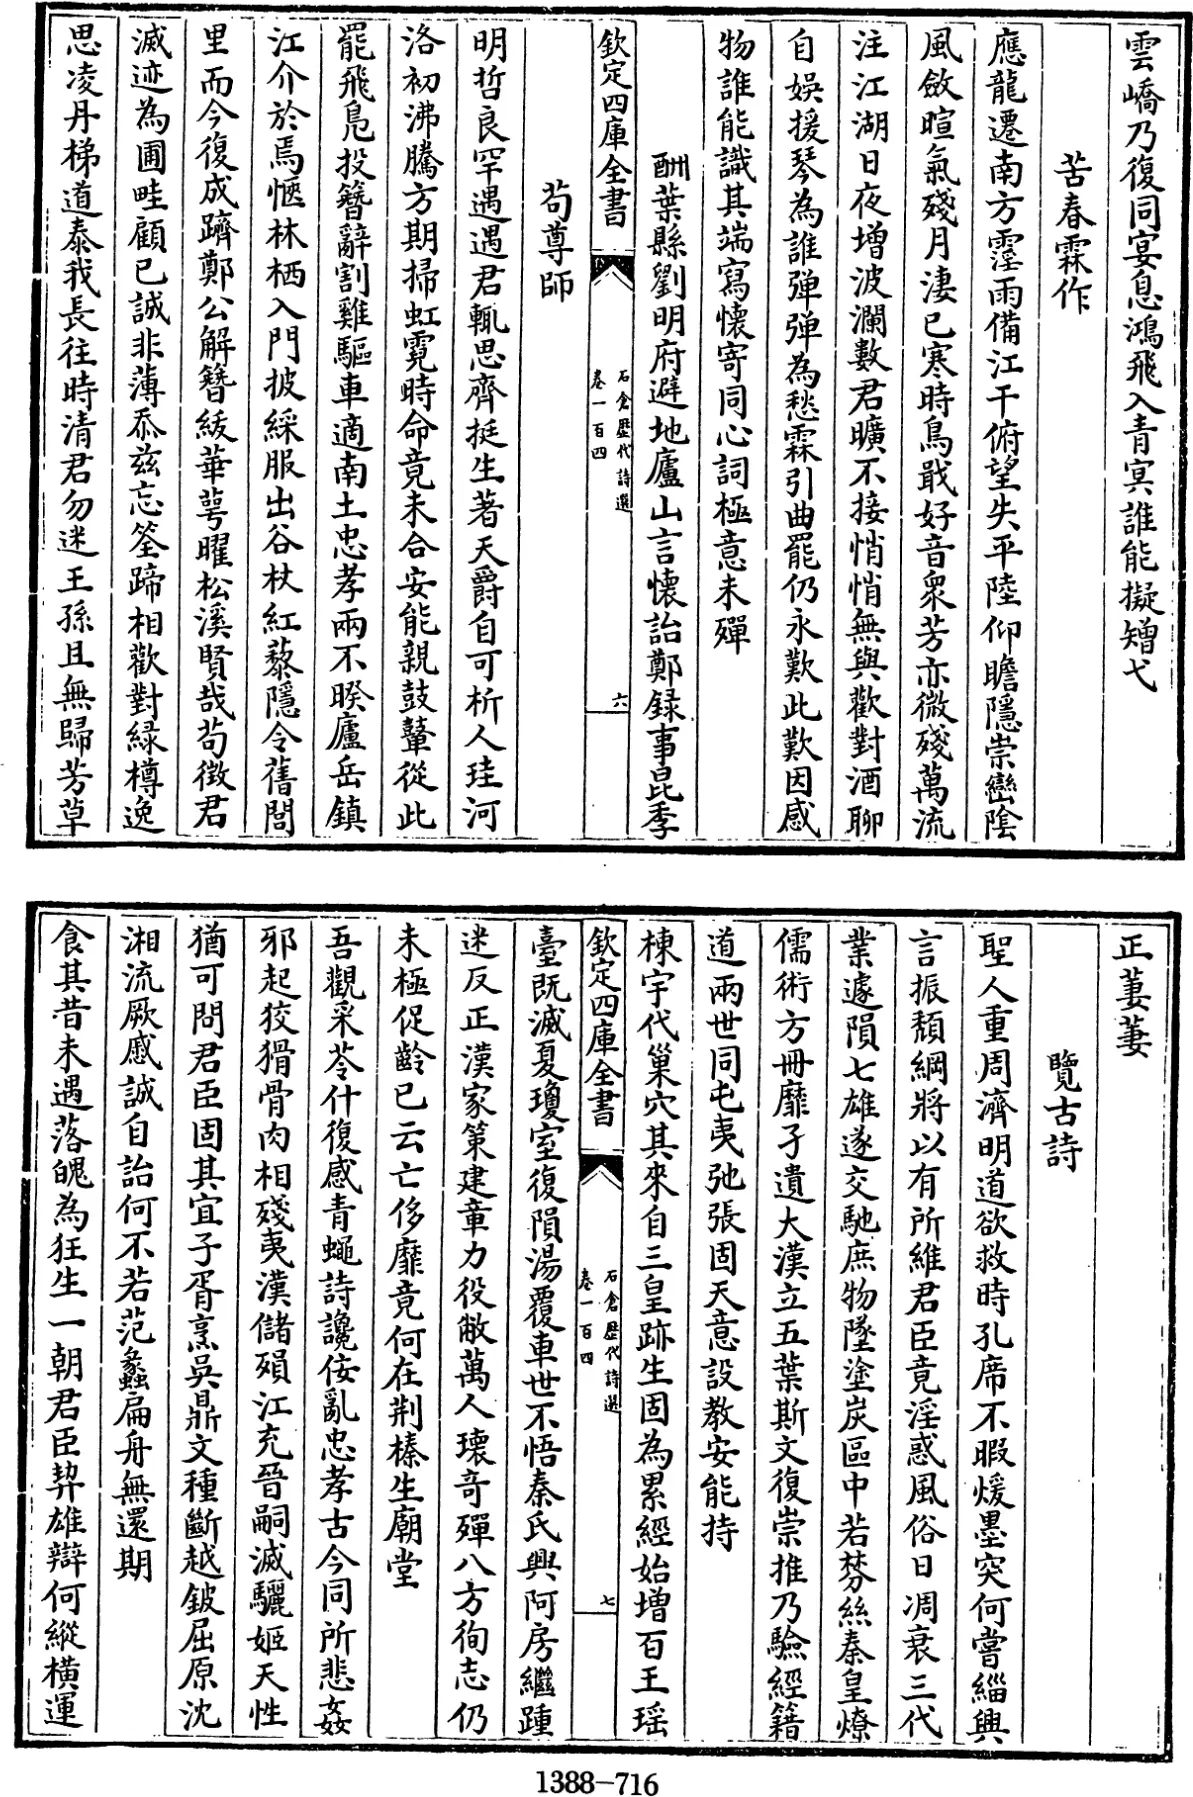 雲嶠乃復同宴息鴻飛入青冥誰能擬矰弋
苦春霖作
應龍遷南方霪雨備江干俯望失平陸仰瞻隱崇巒陰
風斂暄氣殘月淒已寒時鳥戢好音衆芳亦微殘萬流
注江湖日夜增波瀾數君曠不接悄悄無與歡對酒聊
自娯援琴為誰彈彈為愁霖引曲罷仍永歎此歎因感
物誰能識其端寫懷寄同心詞極意未殫
酬葉縣劉明府避地廬山言懷詒鄭録事昆季
欽定四庫全書
石倉歷代詩選
卷一百四
六
茍尊師
明哲良罕遇遇君輒思齊挺生著天爵自可析人珪河
洛初沸騰方期掃虹霓時命竟未合安能親鼓鼙從此
罷飛鳧投簪辭割雞驅車適南土忠孝兩不暌廬岳鎮
江介於焉愜林栖入門披綵服出谷杖紅藜隱令舊閭
里而今復成躋鄭公解簪紱華萼曜松溪賢哉茍徵君
滅迹為圃畦顧已誠非薄忝茲忘筌蹄相歡對緑樽逸
思凌丹梯道泰我長往時清君勿迷王孫且無歸芳草
正萋萋
覽古詩
聖人重周濟明道欲救時孔席不暇煖墨突何嘗緇興
言振頽綱將以有所維君臣竟淫惑風俗日凋衰三代
業遽隕七雄遂交馳庶物墜塗炭區中若棼絲秦皇燎
儒術方冊靡孑遺大漢立五葉斯文復崇推乃驗經籍
道兩世同屯夷弛張固天意設教安能持
棟宇代巢穴其來自三皇跡生固為累經始增百王瑶
欽定四庫全書
石倉歷代詩選
卷一百四
七
臺既滅夏瓊室復隕湯覆車世不悟秦氏興阿房繼踵
迷反正漢家第建章力役敝萬人瓌奇殫八方徇志仍
未極促齡已云亡侈靡竟何在荆榛生廟堂
吾觀采苓什復感青蠅詩讒佞亂忠孝古今同所悲姦
邪起狡猾骨肉相殘夷漢儲殞江充晉嗣滅驪姬天性
猶可問君臣固其宜子胥烹吳鼎文種斷越鈹屈原沈
湘流厥慼誠自詒何不若范蠡扁舟無還期
食其昔未遇落魄為狂生一朝君臣契雄辯何縱横運
1388-716